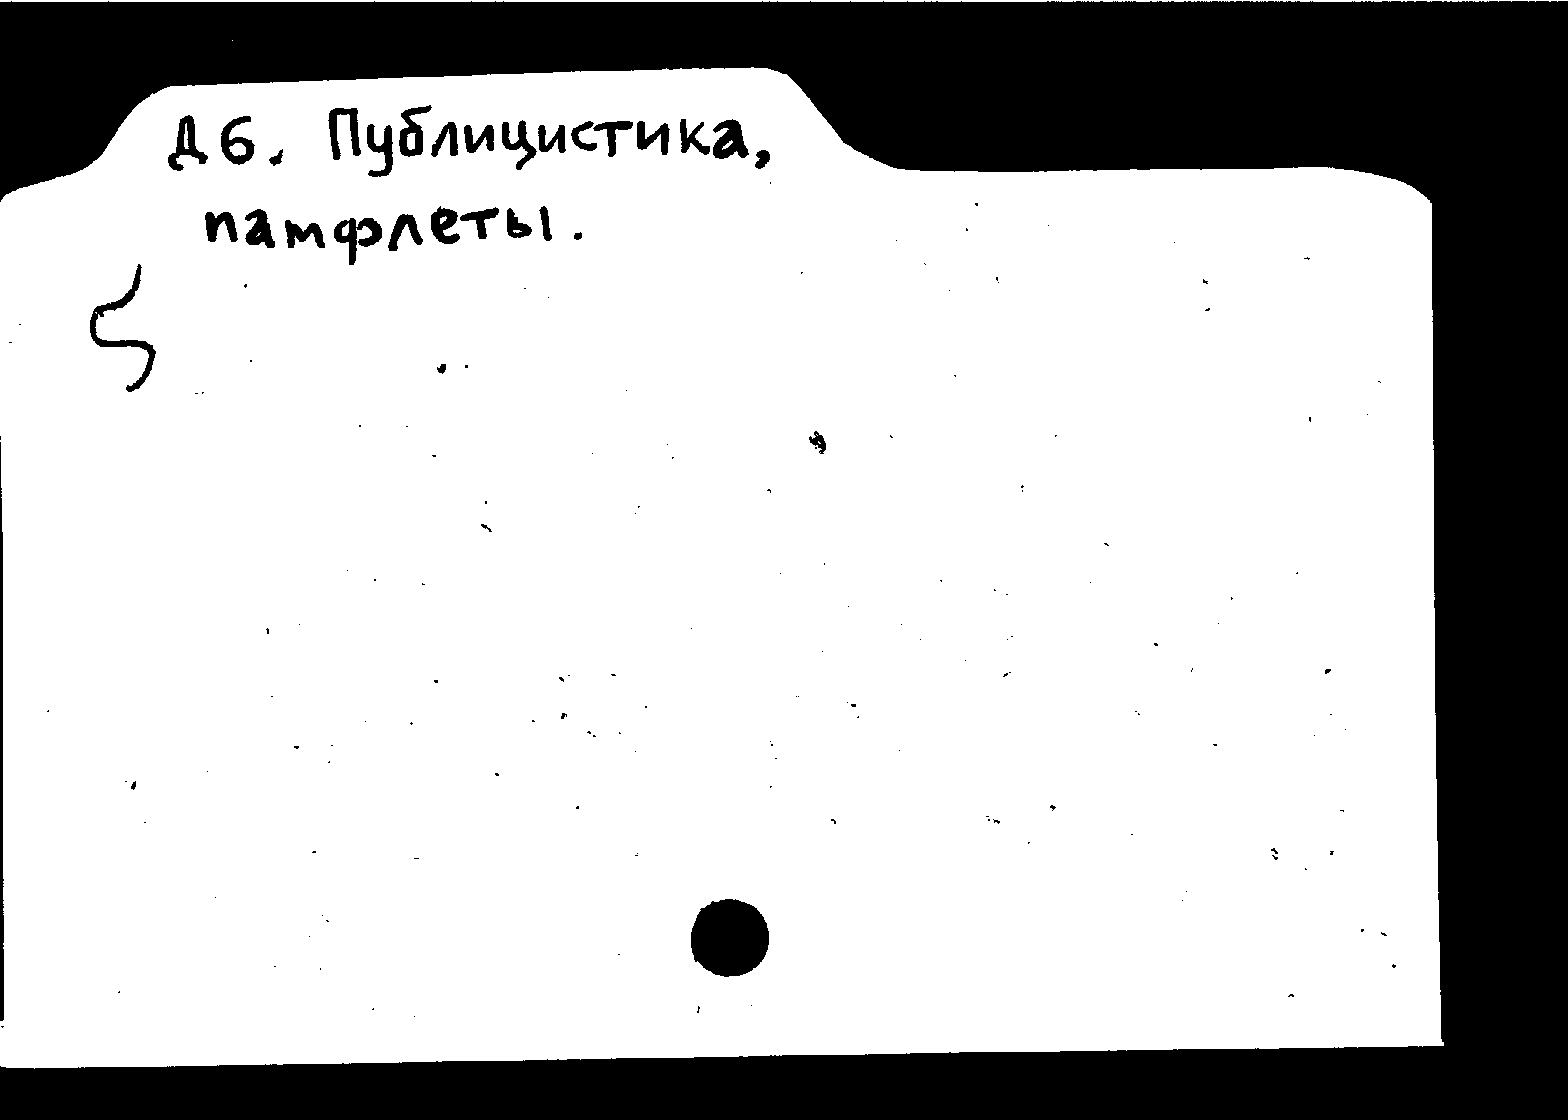 Д6. Публицистика,
памфлеты.